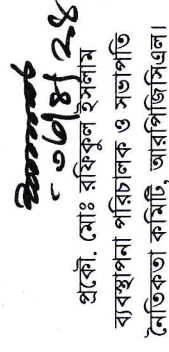 ৩০/৪/২৪
প্রকৌ. মোঃ রফিকুল ইসলাম
ব্যবস্থাপনা পরিচালক ও সভাপতি
নৈতিকতা কমিটি, আরপিজিসিএল।